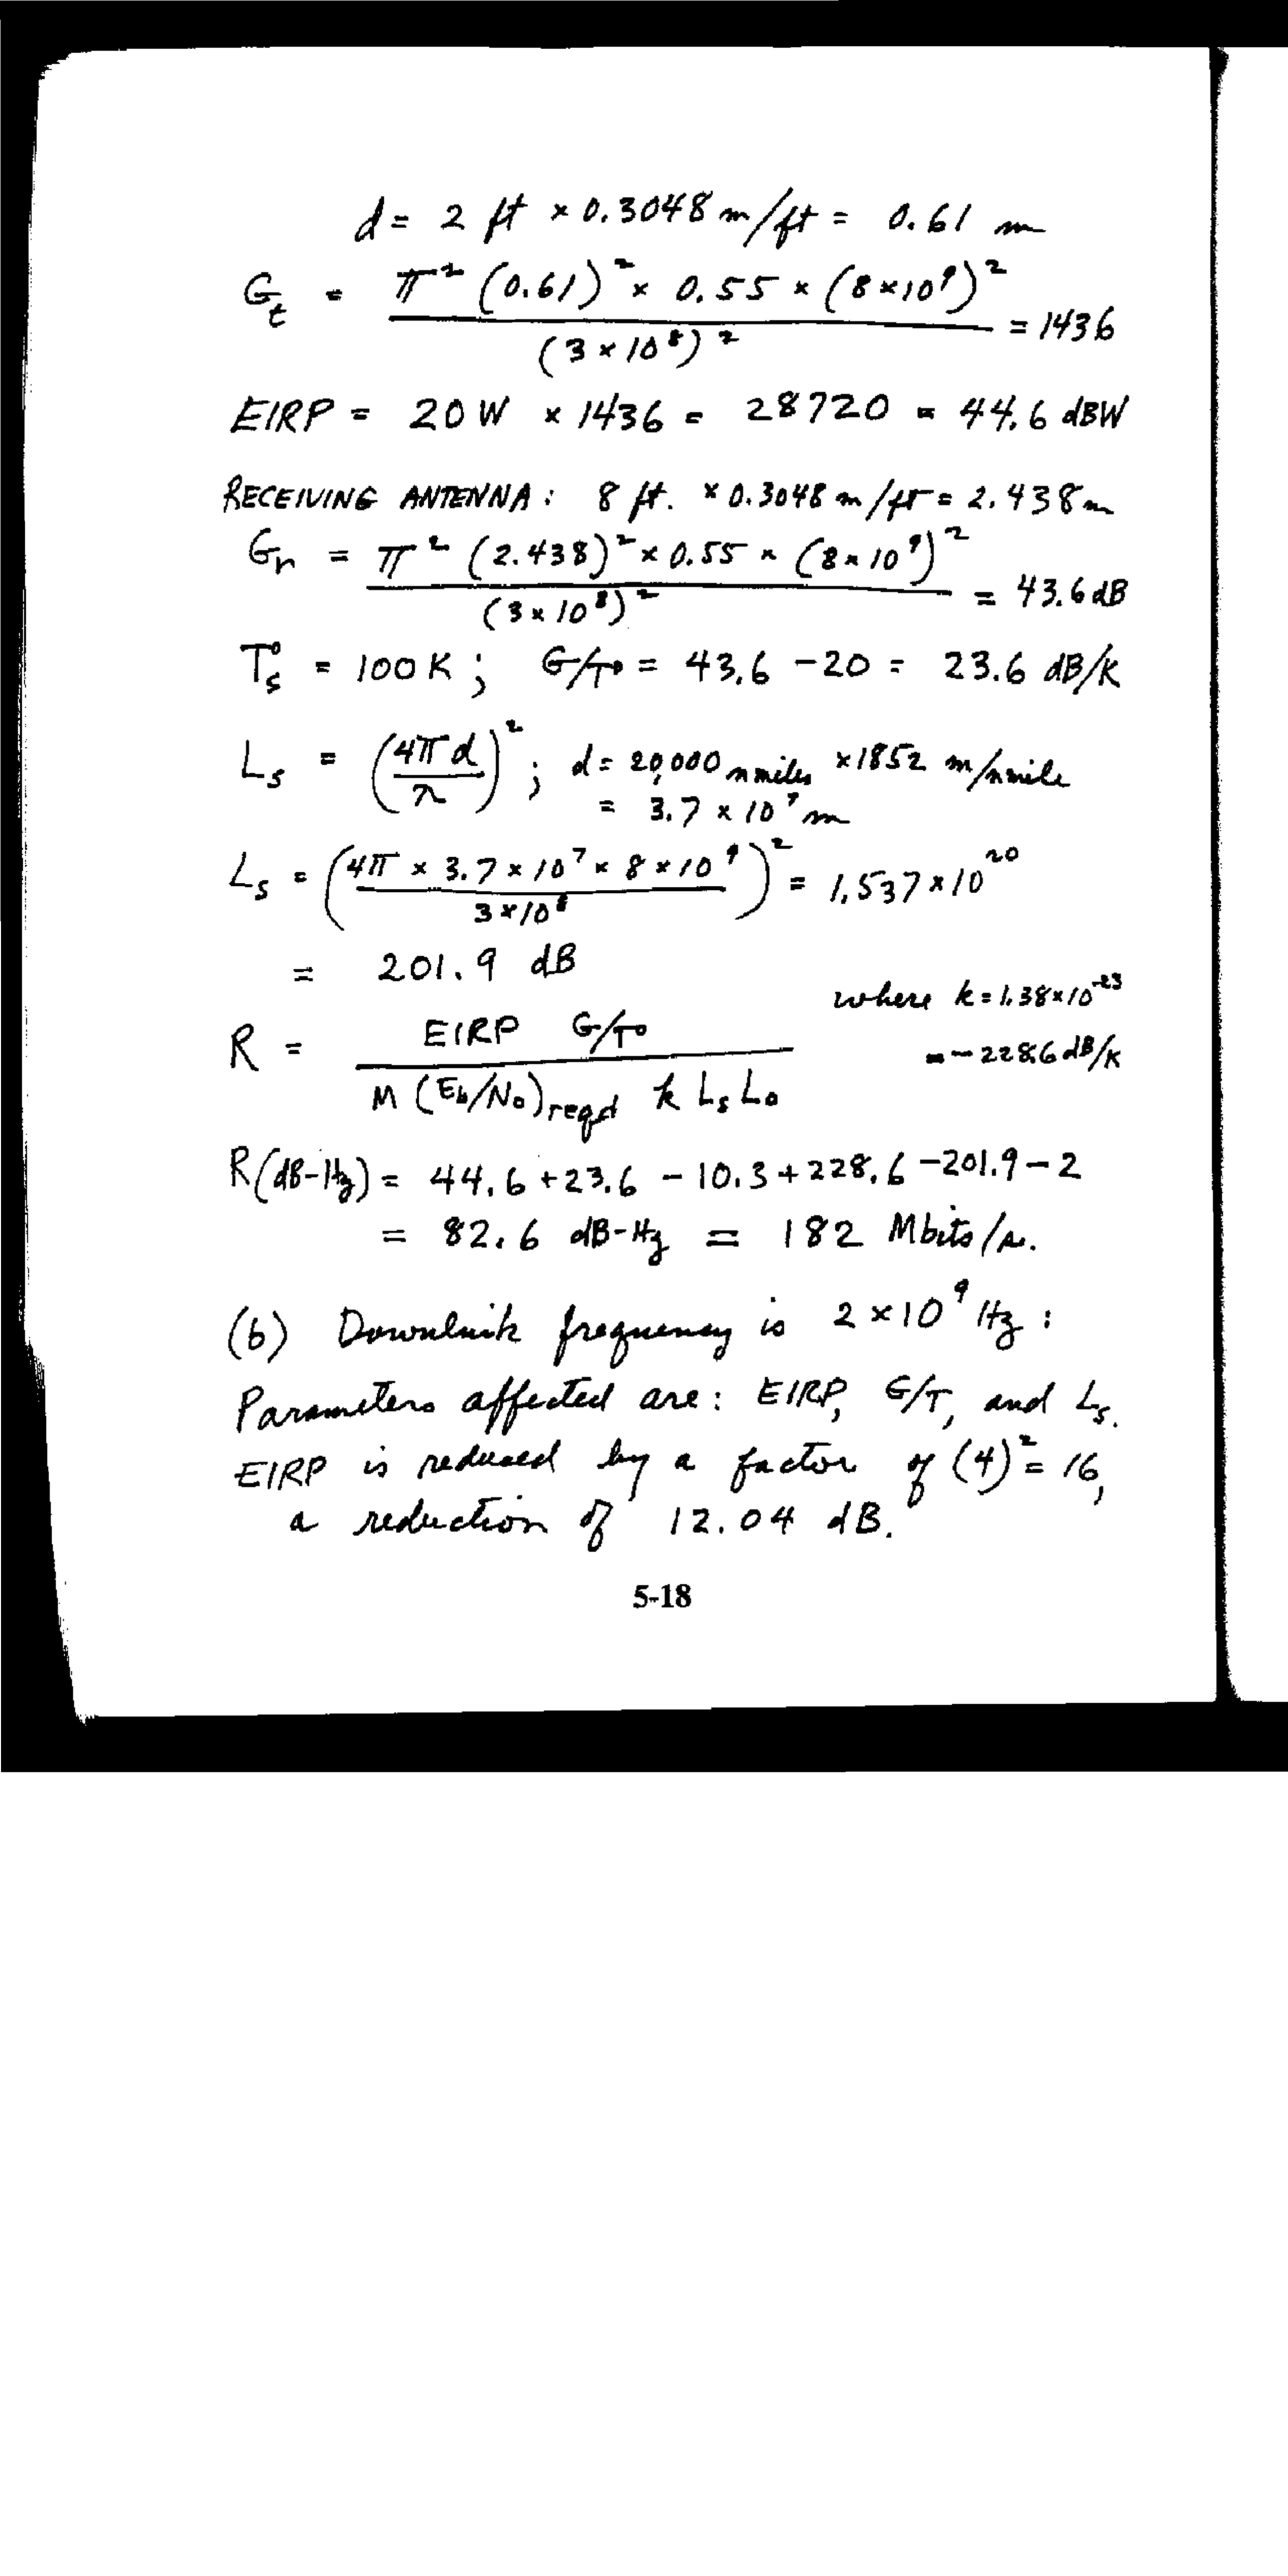 d = 2 ft × 0.3048 m/ft = 0.61 m
G_t = π² (0.61)² × 0.55 × (8×10⁹)² / (3×10⁸)² = 1436
EIRP = 20 W × 1436 = 28720 = 44.6 dBW
RECEIVING ANTENNA: 8 ft. × 0.3048 m/ft = 2.438 m
G_r = π² (2.438)² × 0.55 × (8×10⁹)² / (3×10⁸)² = 43.6 dB
T_s° = 100 K; G/T° = 43.6 - 20 = 23.6 dB/K
L_s = (4πd/λ)²; d = 20,000 nmiles × 1852 m/nmile
= 3.7 × 10⁷ m
L_s = (4π × 3.7×10⁷ × 8×10⁹ / 3×10⁸)² = 1.537×10²⁰
= 201.9 dB
where k = 1.38×10⁻²³
R = EIRP G/T° / M (Eb/No)reqd k L_s L_o
= -228.6 dB/K
R(dB-Hz) = 44.6 + 23.6 - 10.3 + 228.6 - 201.9 - 2
= 82.6 dB-Hz = 182 Mbits/s.
(b) Downlink frequency is 2×10⁹ Hz:
Parameters affected are: EIRP, G/T, and L_s.
EIRP is reduced by a factor of (4)² = 16,
a reduction of 12.04 dB.
5-18